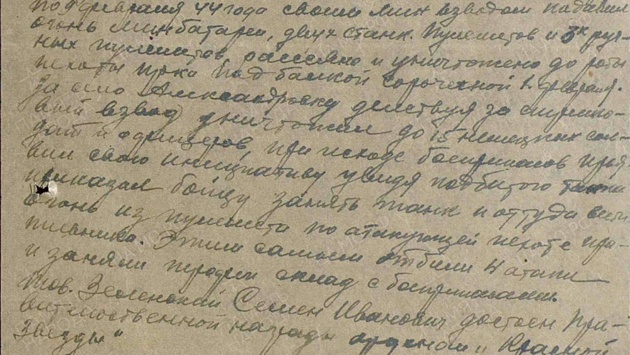 по 7 февраля 44 года своим мин взводом подавил
огонь минбатареи, двух станк. пулеметов и 3х руч-
ных пулеметов, рассеяно и уничтожено до роты
пехоты пр-ка. Под балкой сорочиной 1 февраля.
За село Александровку действуя за стрелко-
вый взвод уничтожил до 15 немецких сол-
дат и офицеров, при исходе боеприпасов проя-
вил свою инициативу увидя подбитого танка
приказал бойцу занять танк и оттуда вести
огонь из пулемета по атакующей пехоте про-
тивника. Этим самым отбили 4 атаки
и заняли трофеи склад с боеприпасами.
тов. Зеленский Семен Иванович достоен пра-
вительственной награды орденом „Красной
Звезды"